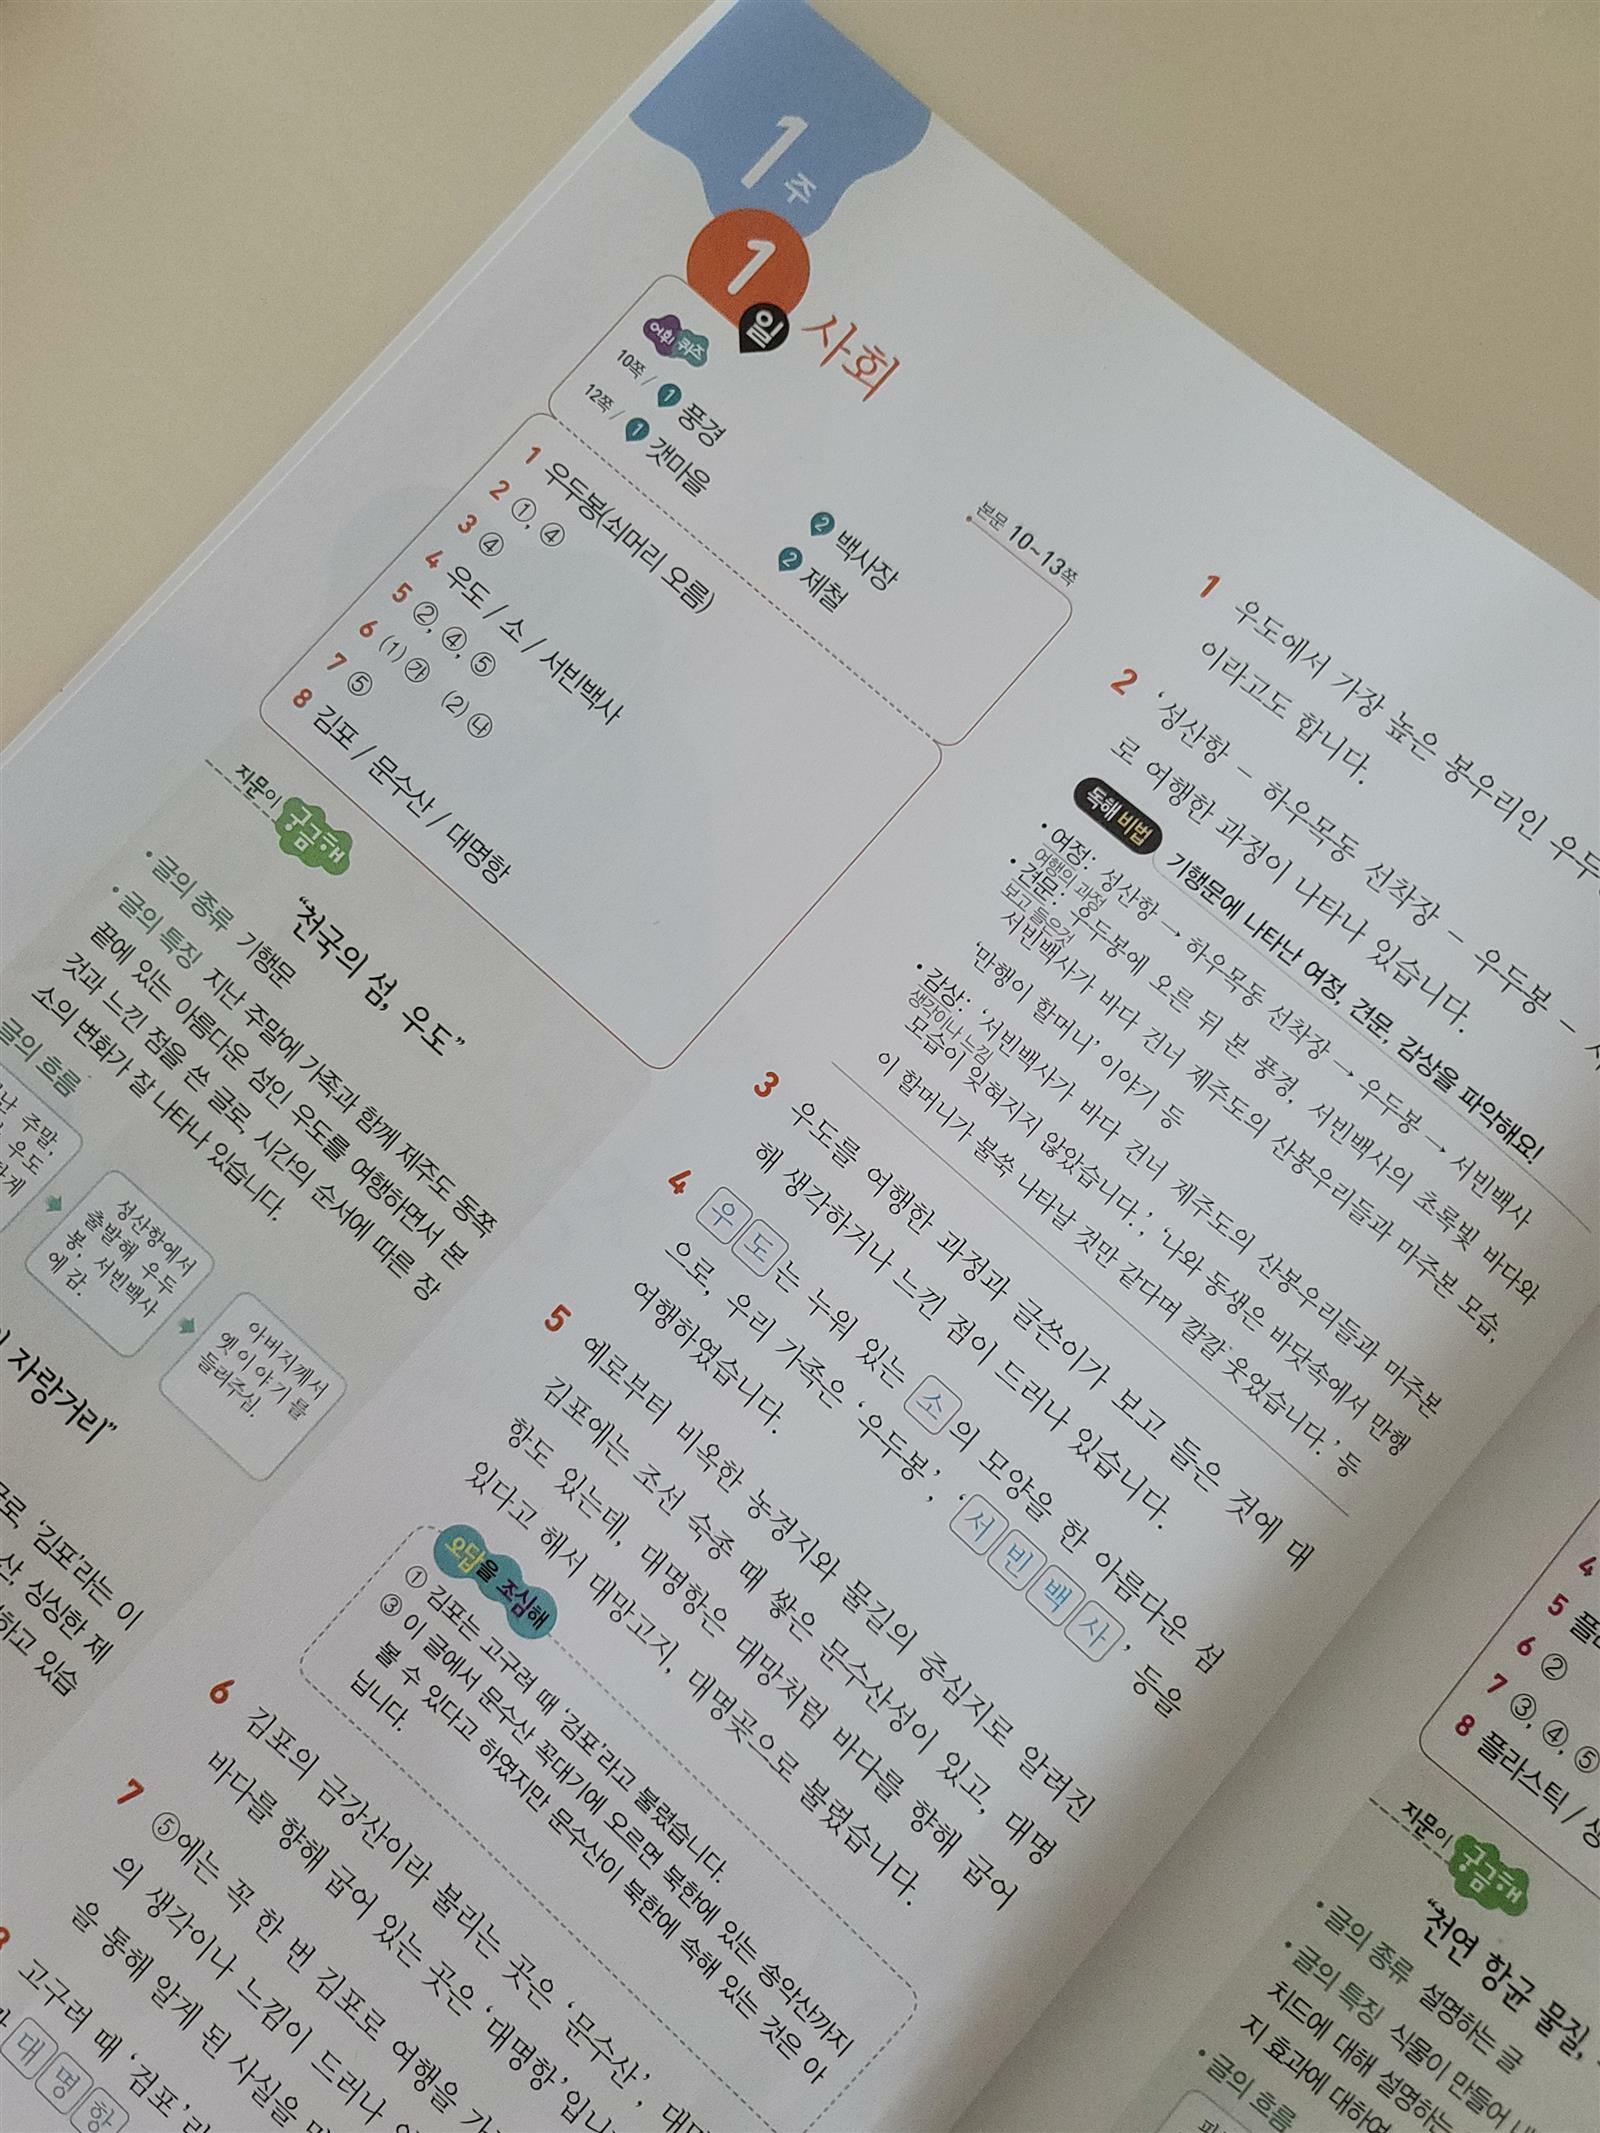 1주
1일 사회
어휘 퀴즈
본문 10~13쪽
10쪽 / 1 풍경 2 백사장
12쪽 / 1 갯마을 2 제철
1 우두봉(쇠머리 오름)
2 ①, ④
3 ④
4 우도 / 소 / 서빈백사
5 ②, ④, ⑤
6 (1) ㉮ (2) ㉯
7 ⑤
8 김포 / 문수산 / 대명항
지문이 궁금해
“천국의 섬, 우도”
• 글의 종류 기행문
• 글의 특징 지난 주말에 가족과 함께 제주도 동쪽
끝에 있는 아름다운 섬인 우도를 여행하면서 본
것과 느낀 점을 쓴 글로, 시간의 순서에 따른 장
소의 변화가 잘 나타나 있습니다.
글의 흐름
주말,
우도
성산항에서
출발해 우두
봉, 서빈백사
에 감.
아버지께서
옛이야기를
들려주심.
자랑거리”
‘김포’라는 이
싱싱한 제
하고 있습
1 우도에서 가장 높은 봉우리인
이라고도 합니다.
2 ‘성산항 – 하우목동 선착장 – 우두봉 –
로 여행한 과정이 나타나 있습니다.
독해 비법 기행문에 나타난 여정, 견문, 감상을 파악해요!
• 여정: 성산항 → 하우목동 선착장 → 우두봉 → 서빈백사
여행의 과정
• 견문: 우두봉에 오른 뒤 본 풍경, 서빈백사의 초록빛 바다와
보고 들은 것
서빈백사가 바다 건너 제주도의 산봉우리들과 마주본 모습,
‘만행이 할머니’ 이야기 등
• 감상: ‘서빈백사가 바다 건너 제주도의 산봉우리들과 마주본
생각이나 느낌
모습이 잊혀지지 않았습니다.’, ‘나와 동생은 바닷속에서 만행
이 할머니가 불쑥 나타날 것만 같다며 깔깔 웃었습니다.’ 등
3 우도를 여행한 과정과 글쓴이가 보고 들은 것에 대
해 생각하거나 느낀 점이 드러나 있습니다.
4 우도는 누워 있는 소의 모양을 한 아름다운 섬
으로, 우리 가족은 ‘우두봉’, ‘서빈백사’ 등을
여행하였습니다.
5 예로부터 비옥한 농경지와 물길의 중심지로 알려진
김포에는 조선 숙종 때 쌓은 문수산성이 있고, 대명
항도 있는데, 대명항은 대망처럼 바다를 향해 굽어
있다고 해서 대망고지, 대명곶으로 불렸습니다.
오답을 조심해
① 김포는 고구려 때 ‘검포’라고 불렸습니다.
③ 이 글에서 문수산 꼭대기에 오르면 북한에 있는 송악산까지
볼 수 있다고 하였지만 문수산이 북한에 속해 있는 것은 아
닙니다.
6 김포의 금강산이라 불리는 곳은 ‘문수산’,
바다를 향해 굽어 있는 곳은 ‘대명항’입니
7 ⑤에는 꼭 한 번 김포로 여행을
의 생각이나 느낌이 드러나
을 통해 알게 된 사실을
8 고구려 때 ‘검포’
대명항
4
5 플
6 ②
7 ③, ④, ⑤
8 플라스틱 /
지문이 궁금해
“천연 항균 물질,
• 글의 종류 설명하는 글
• 글의 특징 식물이 만들어
치드에 대해 설명하는
지 효과에 대하여
• 글의 흐름